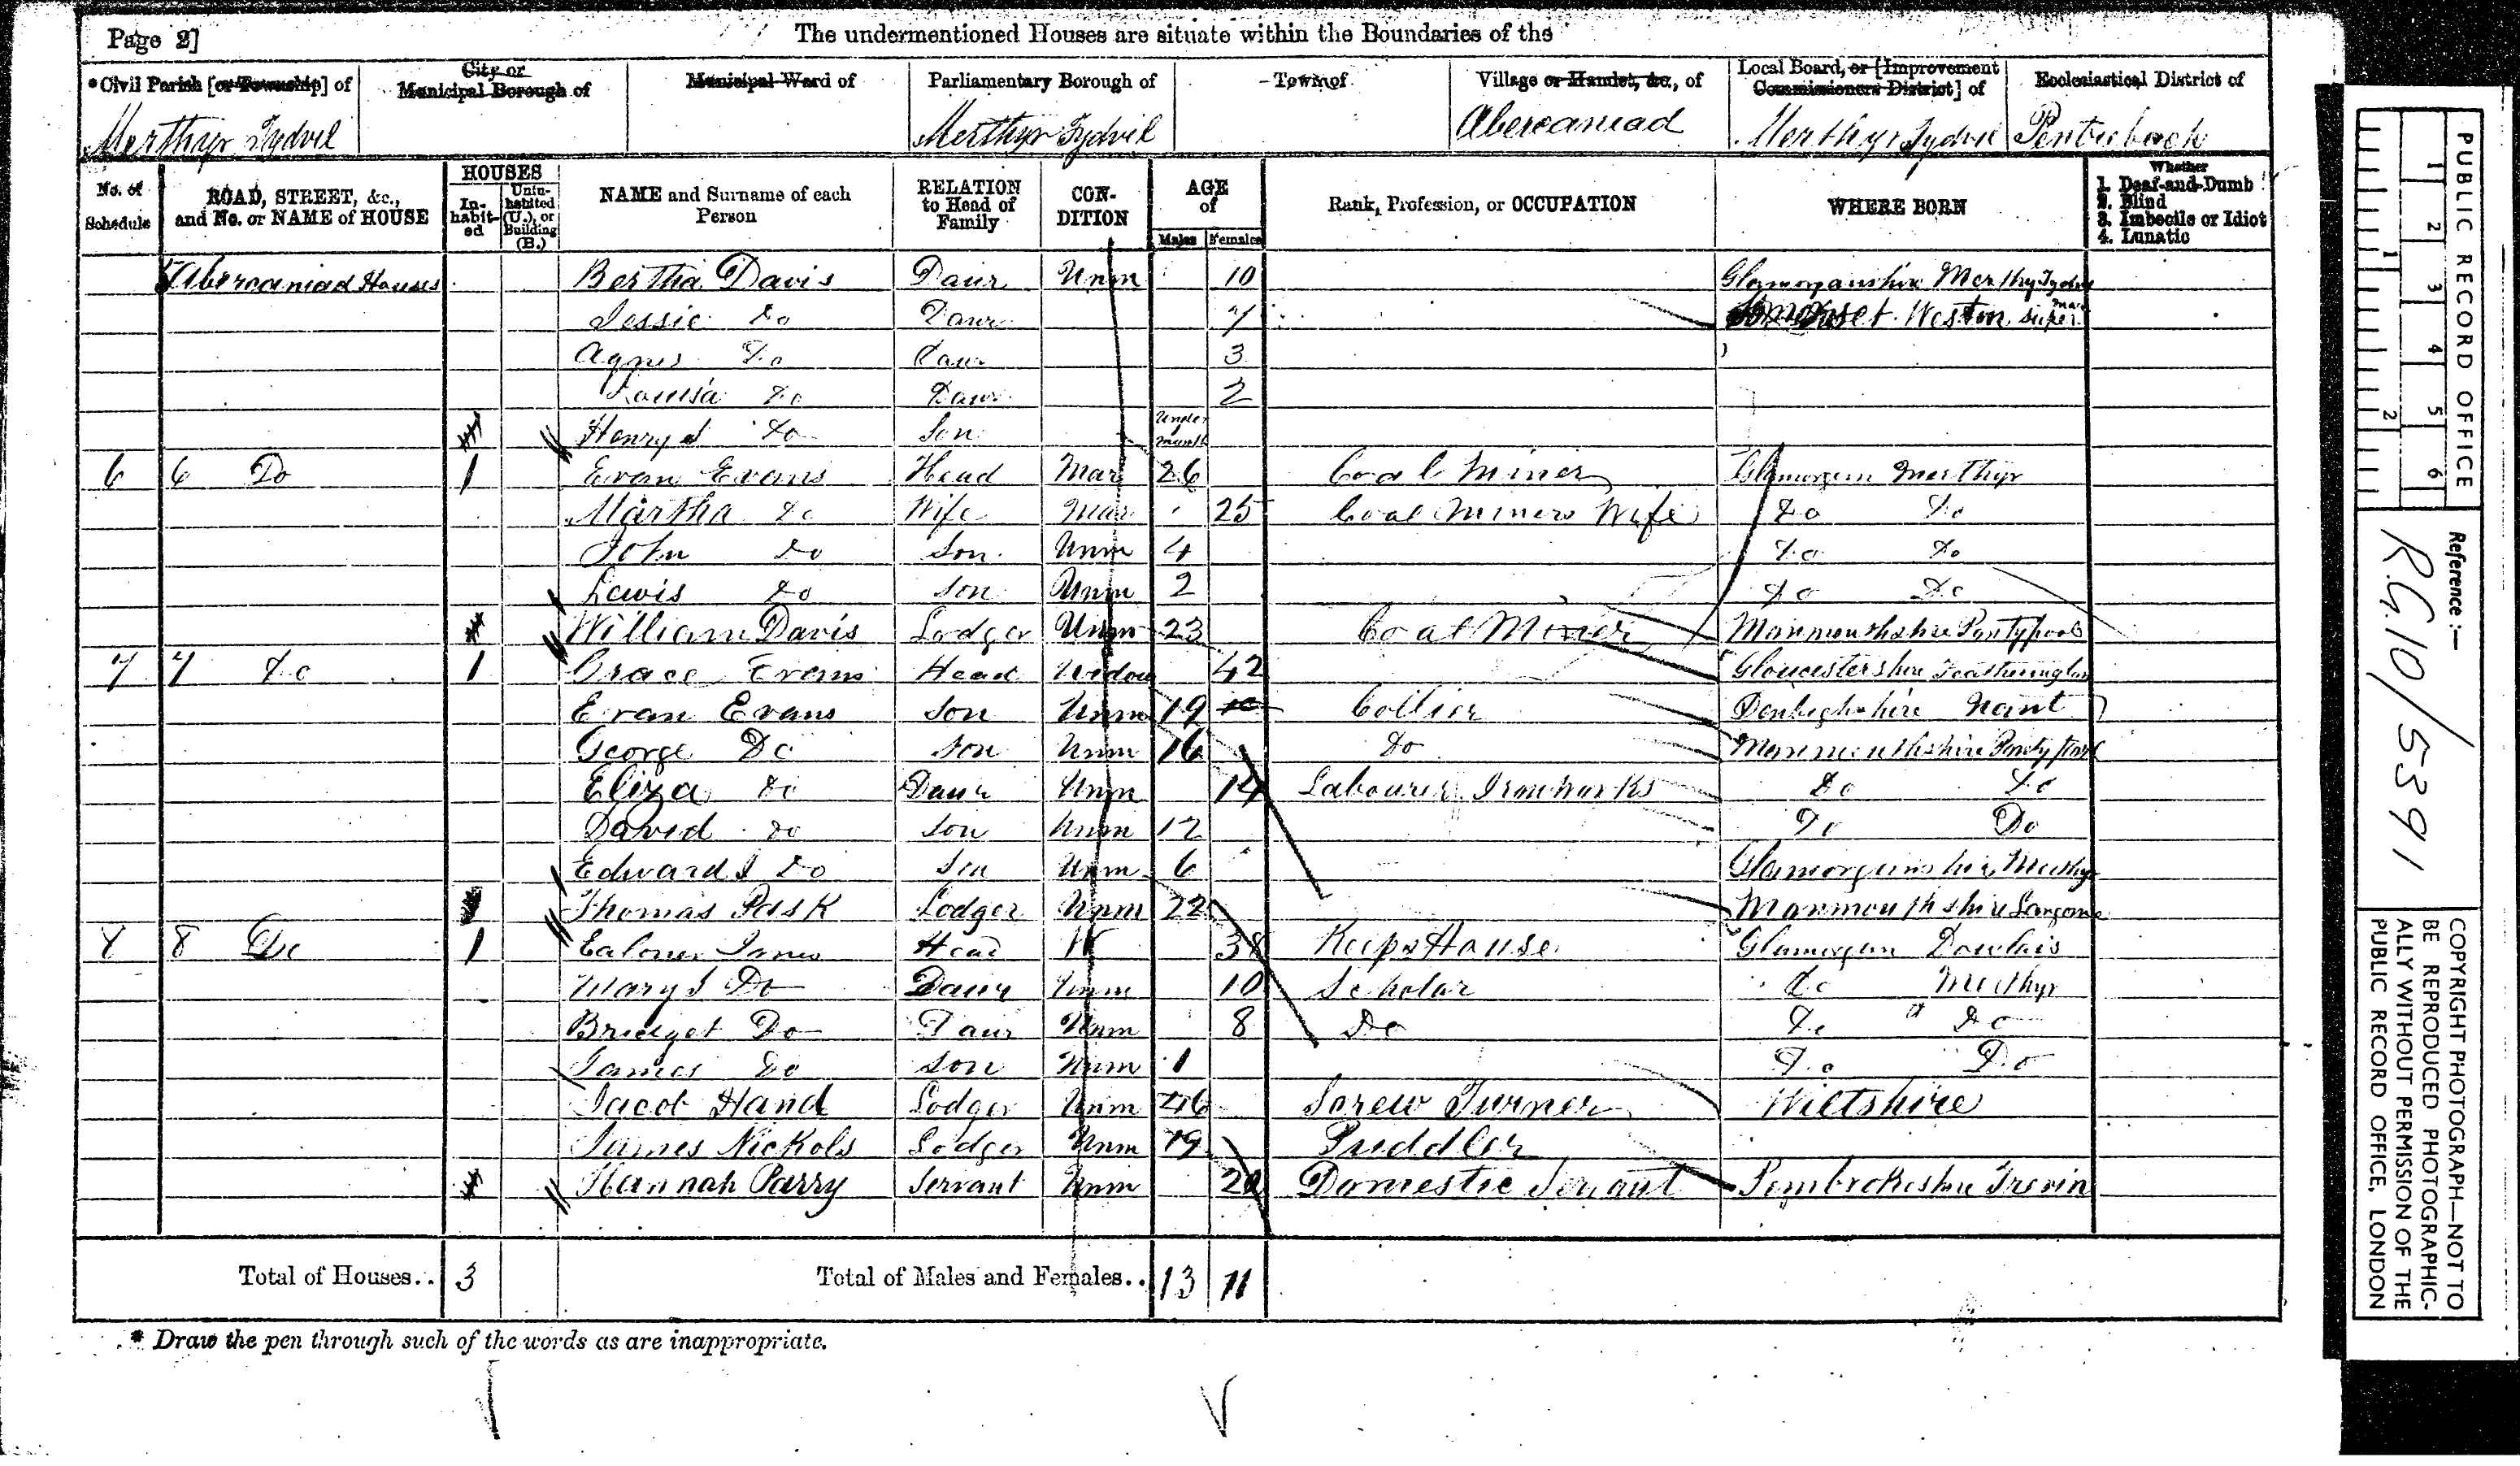 Page 2]
The undermentioned Houses are situate within the Boundaries of the
*Civil Parish [or Township] of
City or Municipal Borough of
Municipal Ward of
Parliamentary Borough of
Town of
Village or Hamlet, &c., of
Local Board, or [Improvement Commissioners District] of
Ecclesiastical District of
Merthyr Tydvil
Merthyr Tydvil
Abercaniad
Merthyr Tydvil
Pentrebach
No. of Schedule
ROAD, STREET, &c., and No. or NAME of HOUSE
HOUSES
Inhabited
Uninhabited (U.), or Building (B.)
NAME and Surname of each Person
RELATION to Head of Family
CONDITION
AGE of
Males
Females
Rank, Profession, or OCCUPATION
WHERE BORN
Whether
1. Deaf-and-Dumb
2. Blind
3. Imbecile or Idiot
4. Lunatic
5 Abercaniad Houses Bertha Davis Daur Unm 10 Glamorganshire Merthyr Tydvil
Jessie Do Daur 7 Somerset Weston super mare
Agnes Do Daur 3
Louisa Do Daur 2
Henry J Do Son Under month
6 6 Do 1 Evan Evans Head Mar 26 Coal Miner Glamorgan Merthyr
Martha Do Wife Mar 25 Coal Miners Wife Do Do
John Do Son Unm 4 Do Do
Lewis Do Son Unm 2 Do Do
William Davis Lodger Unm 23 Coal Miner Monmouthshire Pontypool
7 7 Do 1 Grace Evans Head Widow 42 Gloucestershire
Evan Evans Son Unm 19 Collier Denbighshire Nant
George Do Son Unm 16 Do Monmouthshire Pontypool
Eliza Do Daur Unm 14 Labourer Ironworks Do Do
David Do Son Unm 12 Do Do
Edward J Do Son Unm 6 Glamorganshire Merthyr
Thomas Pask Lodger Unm 22 Monmouthshire
8 8 Do 1 James Head W 38 Keeps House Glamorgan Dowlais
Mary J Do Daur Unm 10 Scholar Do Merthyr
Bridget Do Daur Unm 8 Do Do Do
James Do Son Unm 1 Do Do
Jacob Hand Lodger Unm 46 Screw Turner Wiltshire
James Nickols Lodger Unm 19 Puddler
Hannah Parry Servant Unm 20 Domestic Servant Pembrokeshire Trevin
Total of Houses.. 3
Total of Males and Females.. 13 11
* Draw the pen through such of the words as are inappropriate.
PUBLIC RECORD OFFICE
1 2 3 4 5 6
1 2
Reference:—
R.G. 10/5391
COPYRIGHT PHOTOGRAPH—NOT TO
BE REPRODUCED PHOTOGRAPHIC-
ALLY WITHOUT PERMISSION OF THE
PUBLIC RECORD OFFICE, LONDON